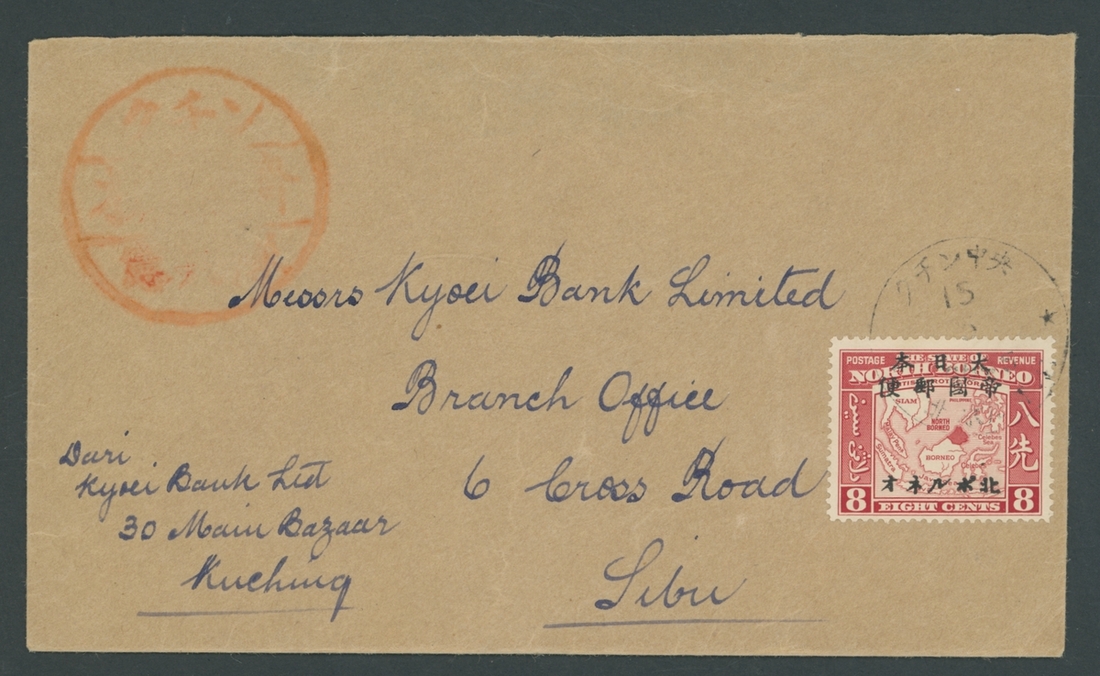 Messrs Kyoei Bank Limited
Branch Office
6 Cross Road
Sibu
Dari
Kyoei Bank Ltd
30 Main Bazaar
Kuching
クチン中央
15
POSTAGE THE STATE OF REVENUE
NORTH BORNEO
本日大
便郵國帝
SIAM
NORTH BORNEO
BORNEO
Celebes Sea
Sumatra
八先
オネルボ北
8 EIGHT CENTS 8